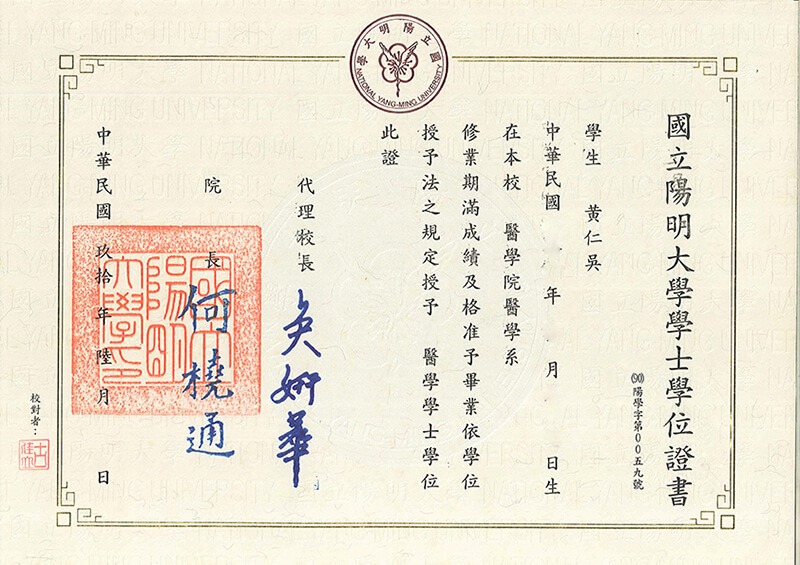 國立陽明大學
NATIONAL YANG-MING UNIVERSITY
國立陽明大學學士學位證書
(90)陽學字第00五九號
學生 黃仁吳
中華民國 年 月 日生
在本校 醫學院醫學系
修業期滿成績及格准予畢業依學位
授予法之規定授予 醫學學士學位
此證
代理校長 吳妍華
院長 何橈通
國立陽明大學印
中華民國玖拾年陸月 日
校對者：